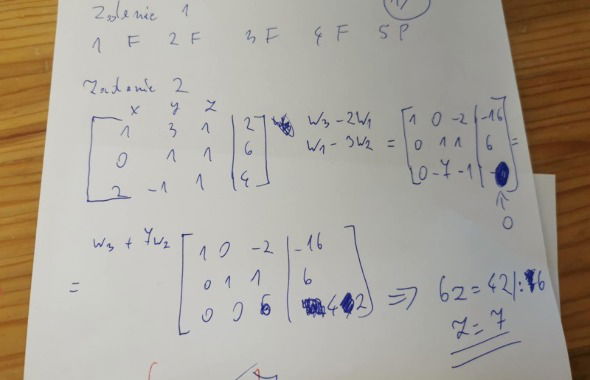 Zadanie 1
1 F 2 F 3 F 4 F 5 P
Zadanie 2
x y z
1 3 1 | 2
0 1 1 | 6
2 -1 1 | 4
W3 - 2W1
W1 - 3W2
=
1 0 -2 | -16
0 1 1 | 6
0 -7 -1 |
=
↑
0
W3 + 7W2
=
1 0 -2 | -16
0 1 1 | 6
0 0 6 | 42
=> 6z = 42 |: 6
z = 7